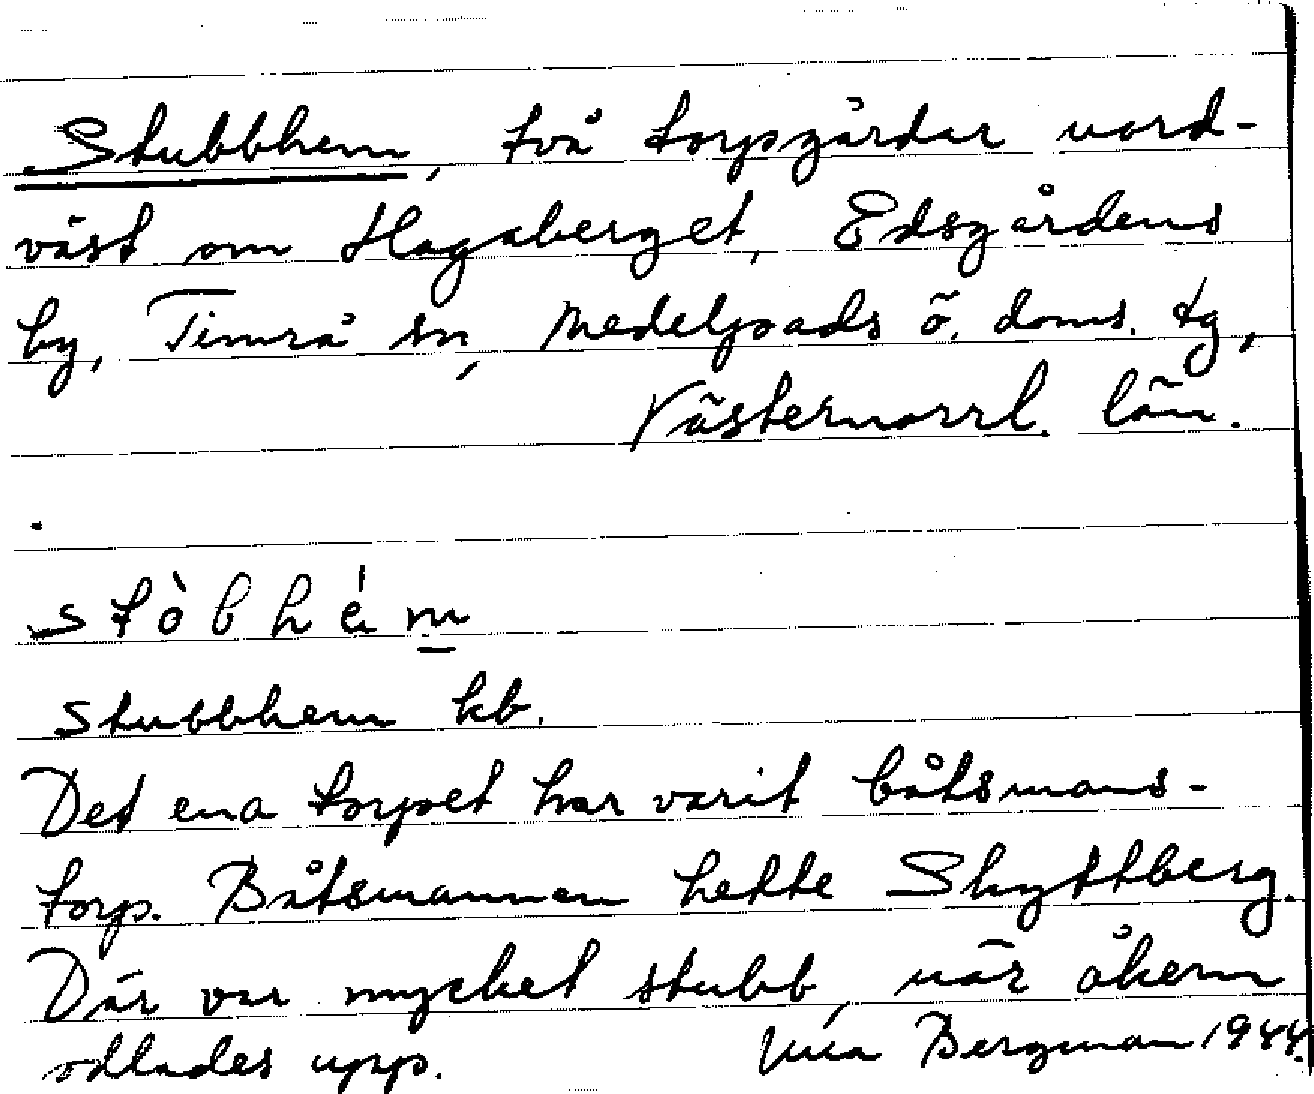 Stubbhem, två torpsgårdar nord-
väst om Hagaberget, Edsgårdens
by, Timrå sn, Medelpads ö. doms. tg,
Västernorrl. län.
stòbhém
Stubbhem kb.
Det ena torpet har varit båtsmans-
torp. Båtsmannen hette Skyttberg.
Där var mycket stubb, när åkern
odlades upp.
Bergman 1944.